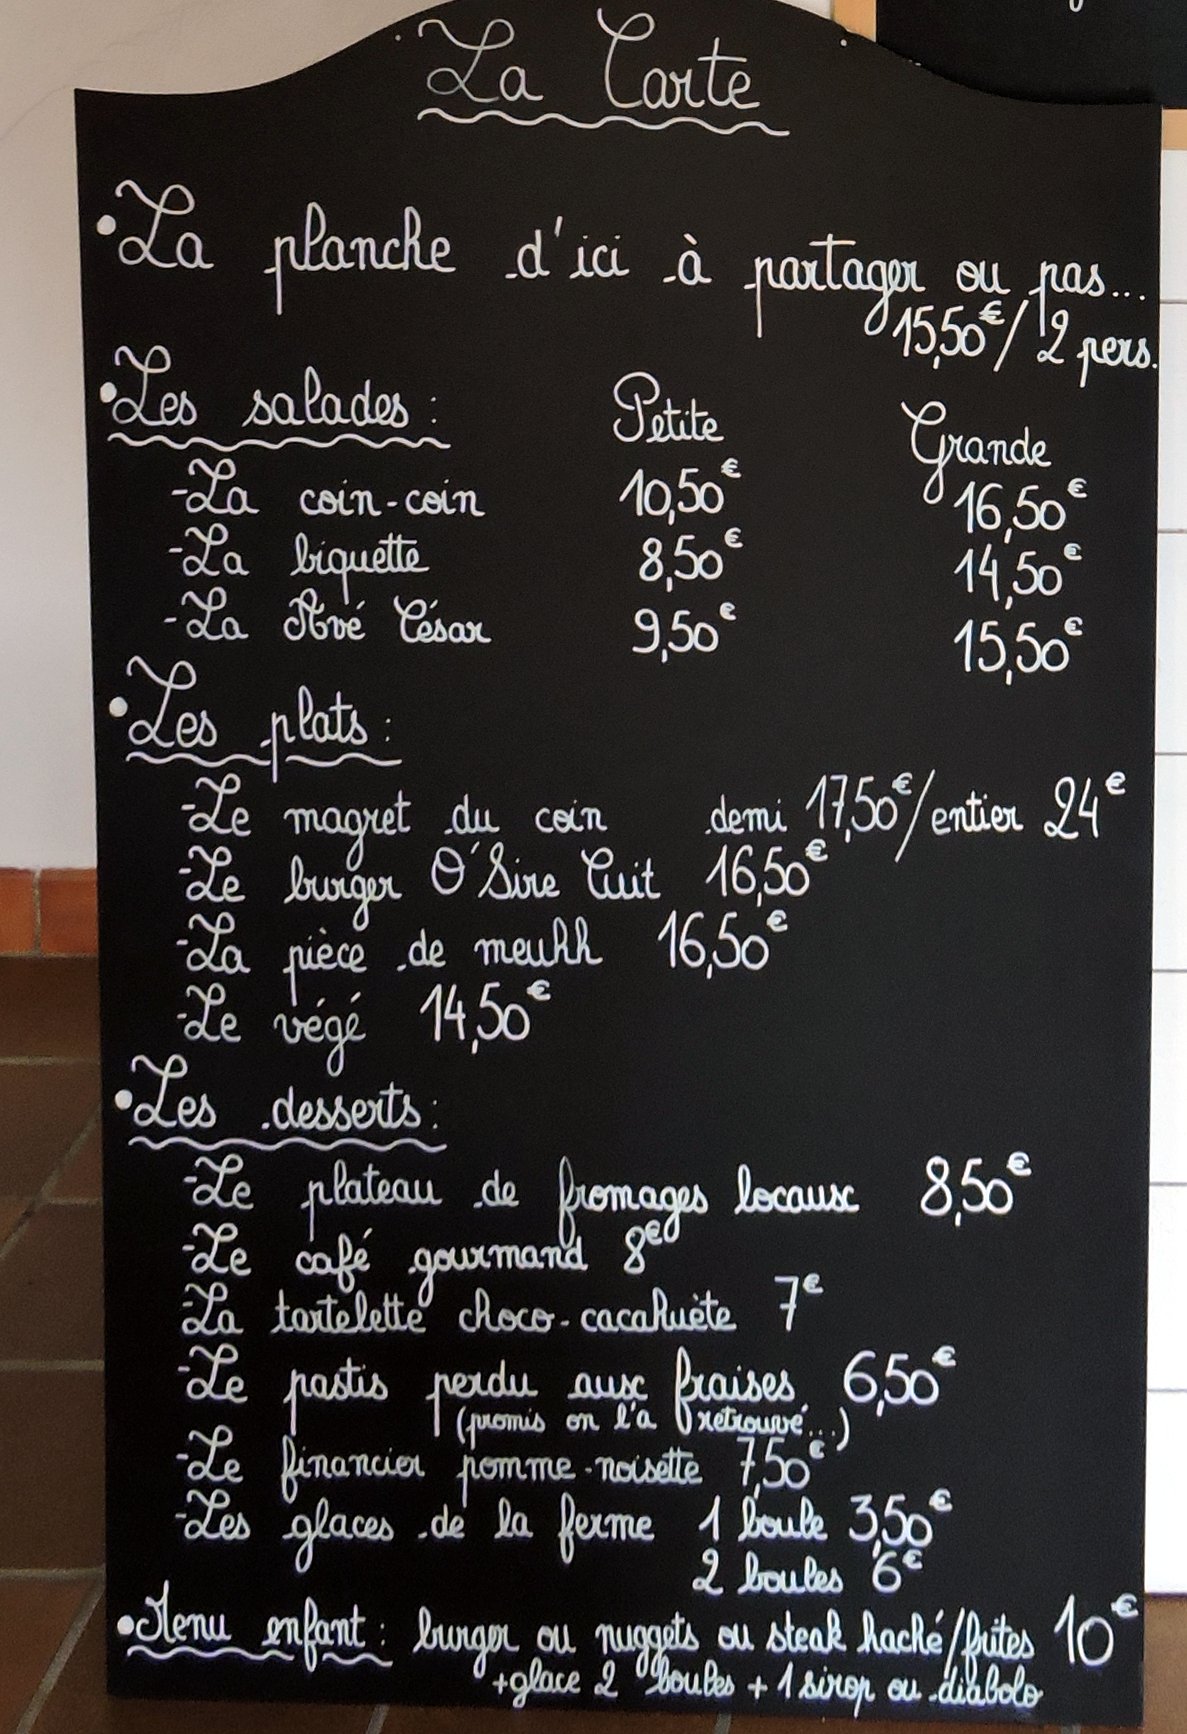 La Carte
• La planche d'ici à partager ou pas...
15,50€/2 pers.
• Les salades : Petite Grande
- La coin-coin 10,50€ 16,50€
- La biquette 8,50€ 14,50€
- La Avé César 9,50€ 15,50€
• Les plats :
- Le magret du coin demi 17,50€/entier 24€
- Le burger O'Sire Cuit 16,50€
- La pièce de meuhh 16,50€
- Le végé 14,50€
• Les desserts :
- Le plateau de fromages locaux 8,50€
- Le café gourmand 8€
- La tartelette choco-cacahuète 7€
- Le pastis perdu aux fraises 6,50€
(promis on l'a retrouvé...)
- Le financier pomme-noisette 7,50€
- Les glaces de la ferme 1 boule 3,50€
2 boules 6€
• Menu enfant : burger ou nuggets ou steak haché/frites 10€
+glace 2 boules + 1 sirop ou diabolo